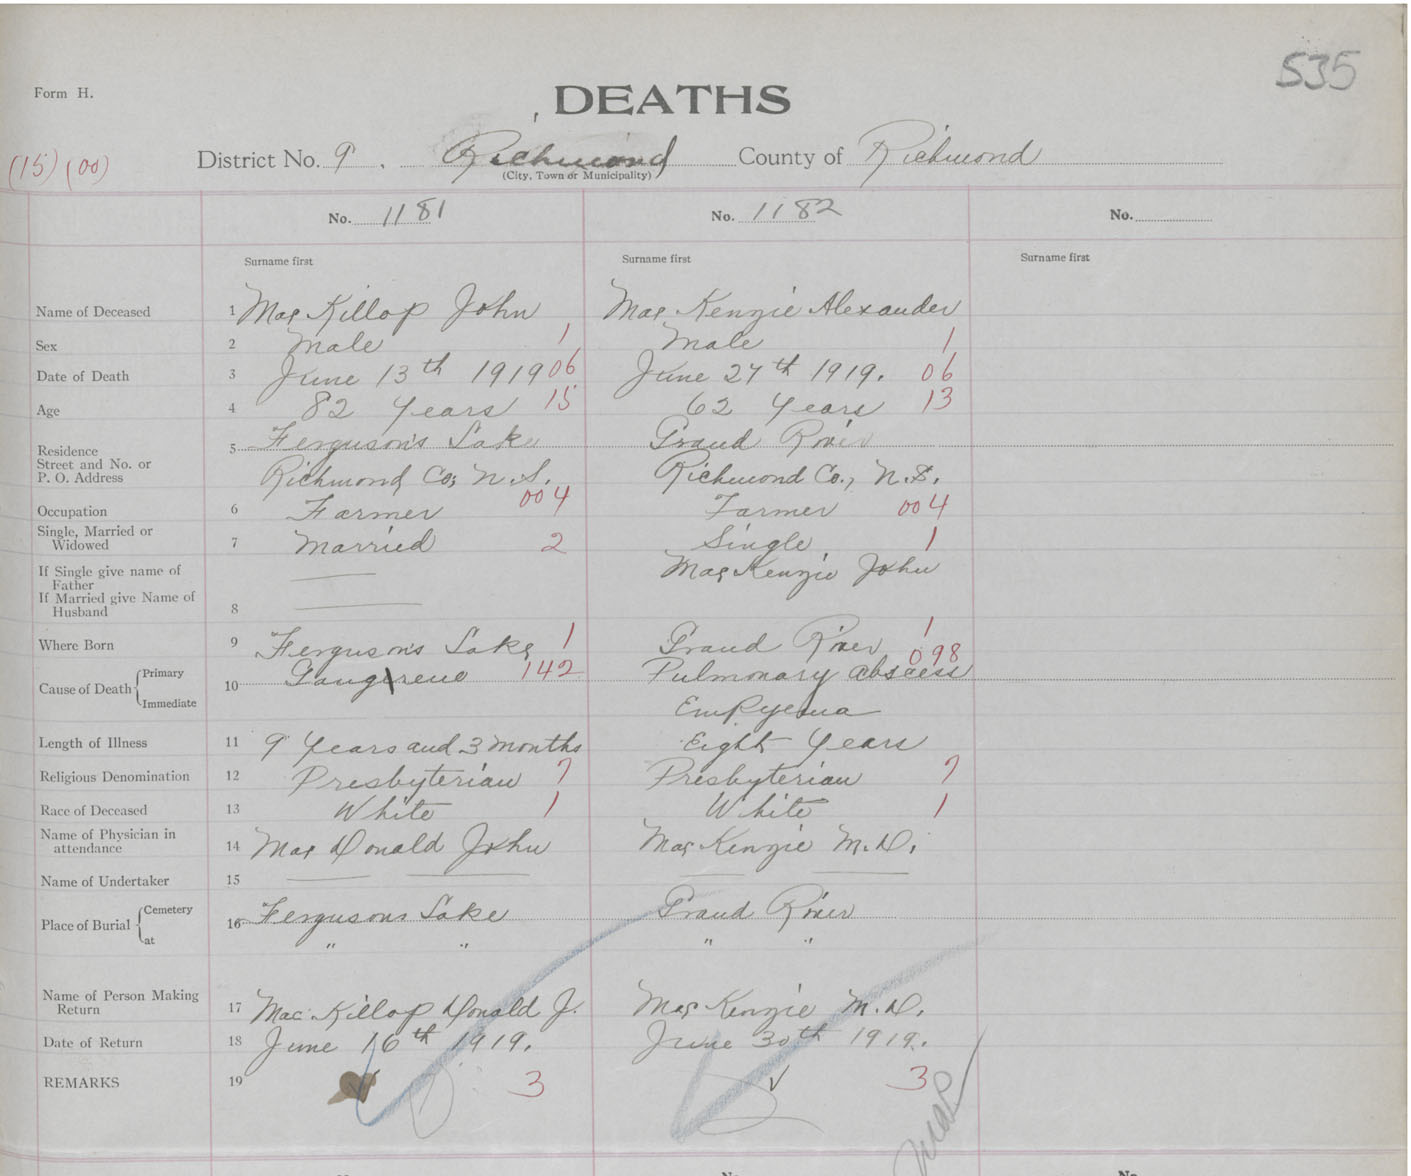 535
Form H.
DEATHS
(15) (00)
District No. 9. Richmond County of Richmond
(City, Town or Municipality)
No. 1181 No. 1182 No.
Surname first Surname first Surname first
Name of Deceased 1 Mac Killop John Mac Kenzie Alexander
Sex 2 Male 1 Male 1
Date of Death 3 June 13th 1919 06 June 27th 1919. 06
Age 4 82 Years 15 62 Years 13
Residence 5 Ferguson's Lake Grand River
Street and No. or
P. O. Address Richmond Co; N.S. Richmond Co., N.S.
Occupation 6 Farmer 004 Farmer 004
Single, Married or
Widowed 7 Married 2 Single 1
If Single give name of
Father Mac Kenzie John
If Married give Name of
Husband 8
Where Born 9 Ferguson's Lake 1 Grand River 1
Cause of Death Primary 10 Gangrene 142 Pulmonary abscess 098
Immediate Empyema
Length of Illness 11 9 Years and 3 months Eight Years
Religious Denomination 12 Presbyterian 7 Presbyterian 7
Race of Deceased 13 White 1 White 1
Name of Physician in
attendance 14 Mac Donald John Mac Kenzie M.D.
Name of Undertaker 15
Place of Burial Cemetery 16 Fergusons Lake Grand River
at " " " "
Name of Person Making
Return 17 Mac Killop Donald J. Mac Kenzie M.D.
Date of Return 18 June 16th 1919. June 30th 1919.
REMARKS 19 3 3
No. No. No.